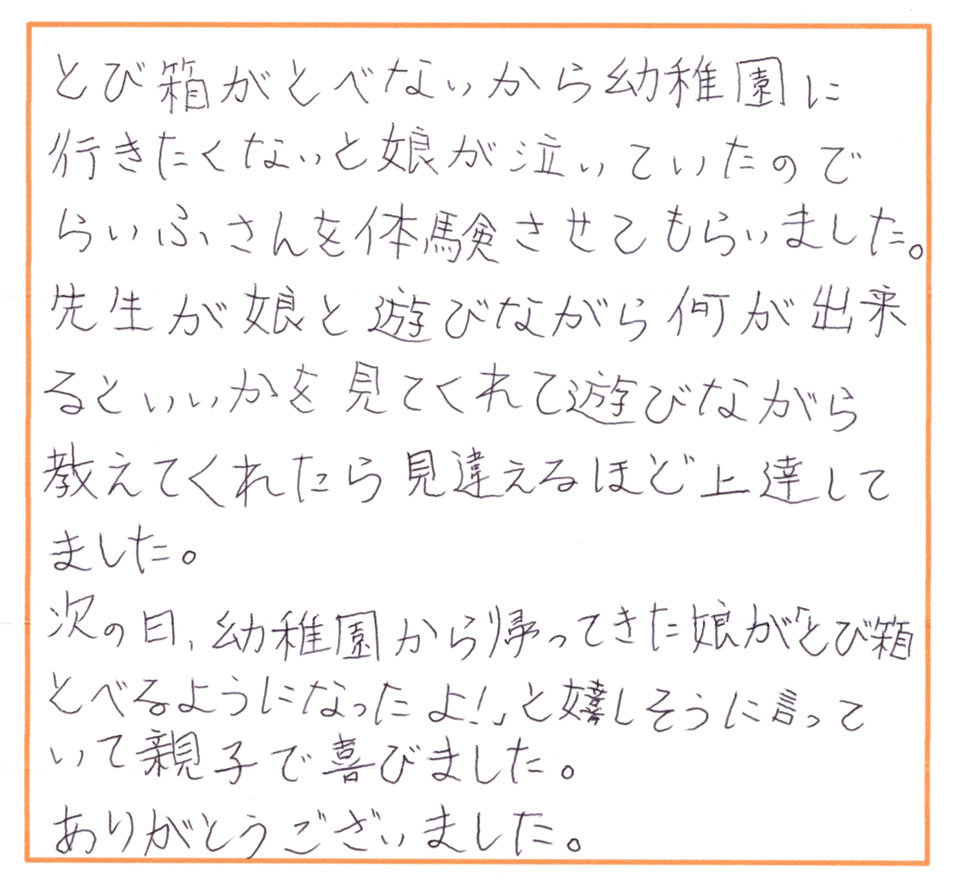 とび箱がとべないから幼稚園に
行きたくないと娘が泣いていたので
らいふさんを体験させてもらいました。
先生が娘と遊びながら何が出来
るといいかを見てくれて遊びながら
教えてくれたら見違えるほど上達して
ました。
次の日、幼稚園から帰ってきた娘が「とび箱
とべるようになったよ！」と嬉しそうに言って
いて親子で喜びました。
ありがとうございました。